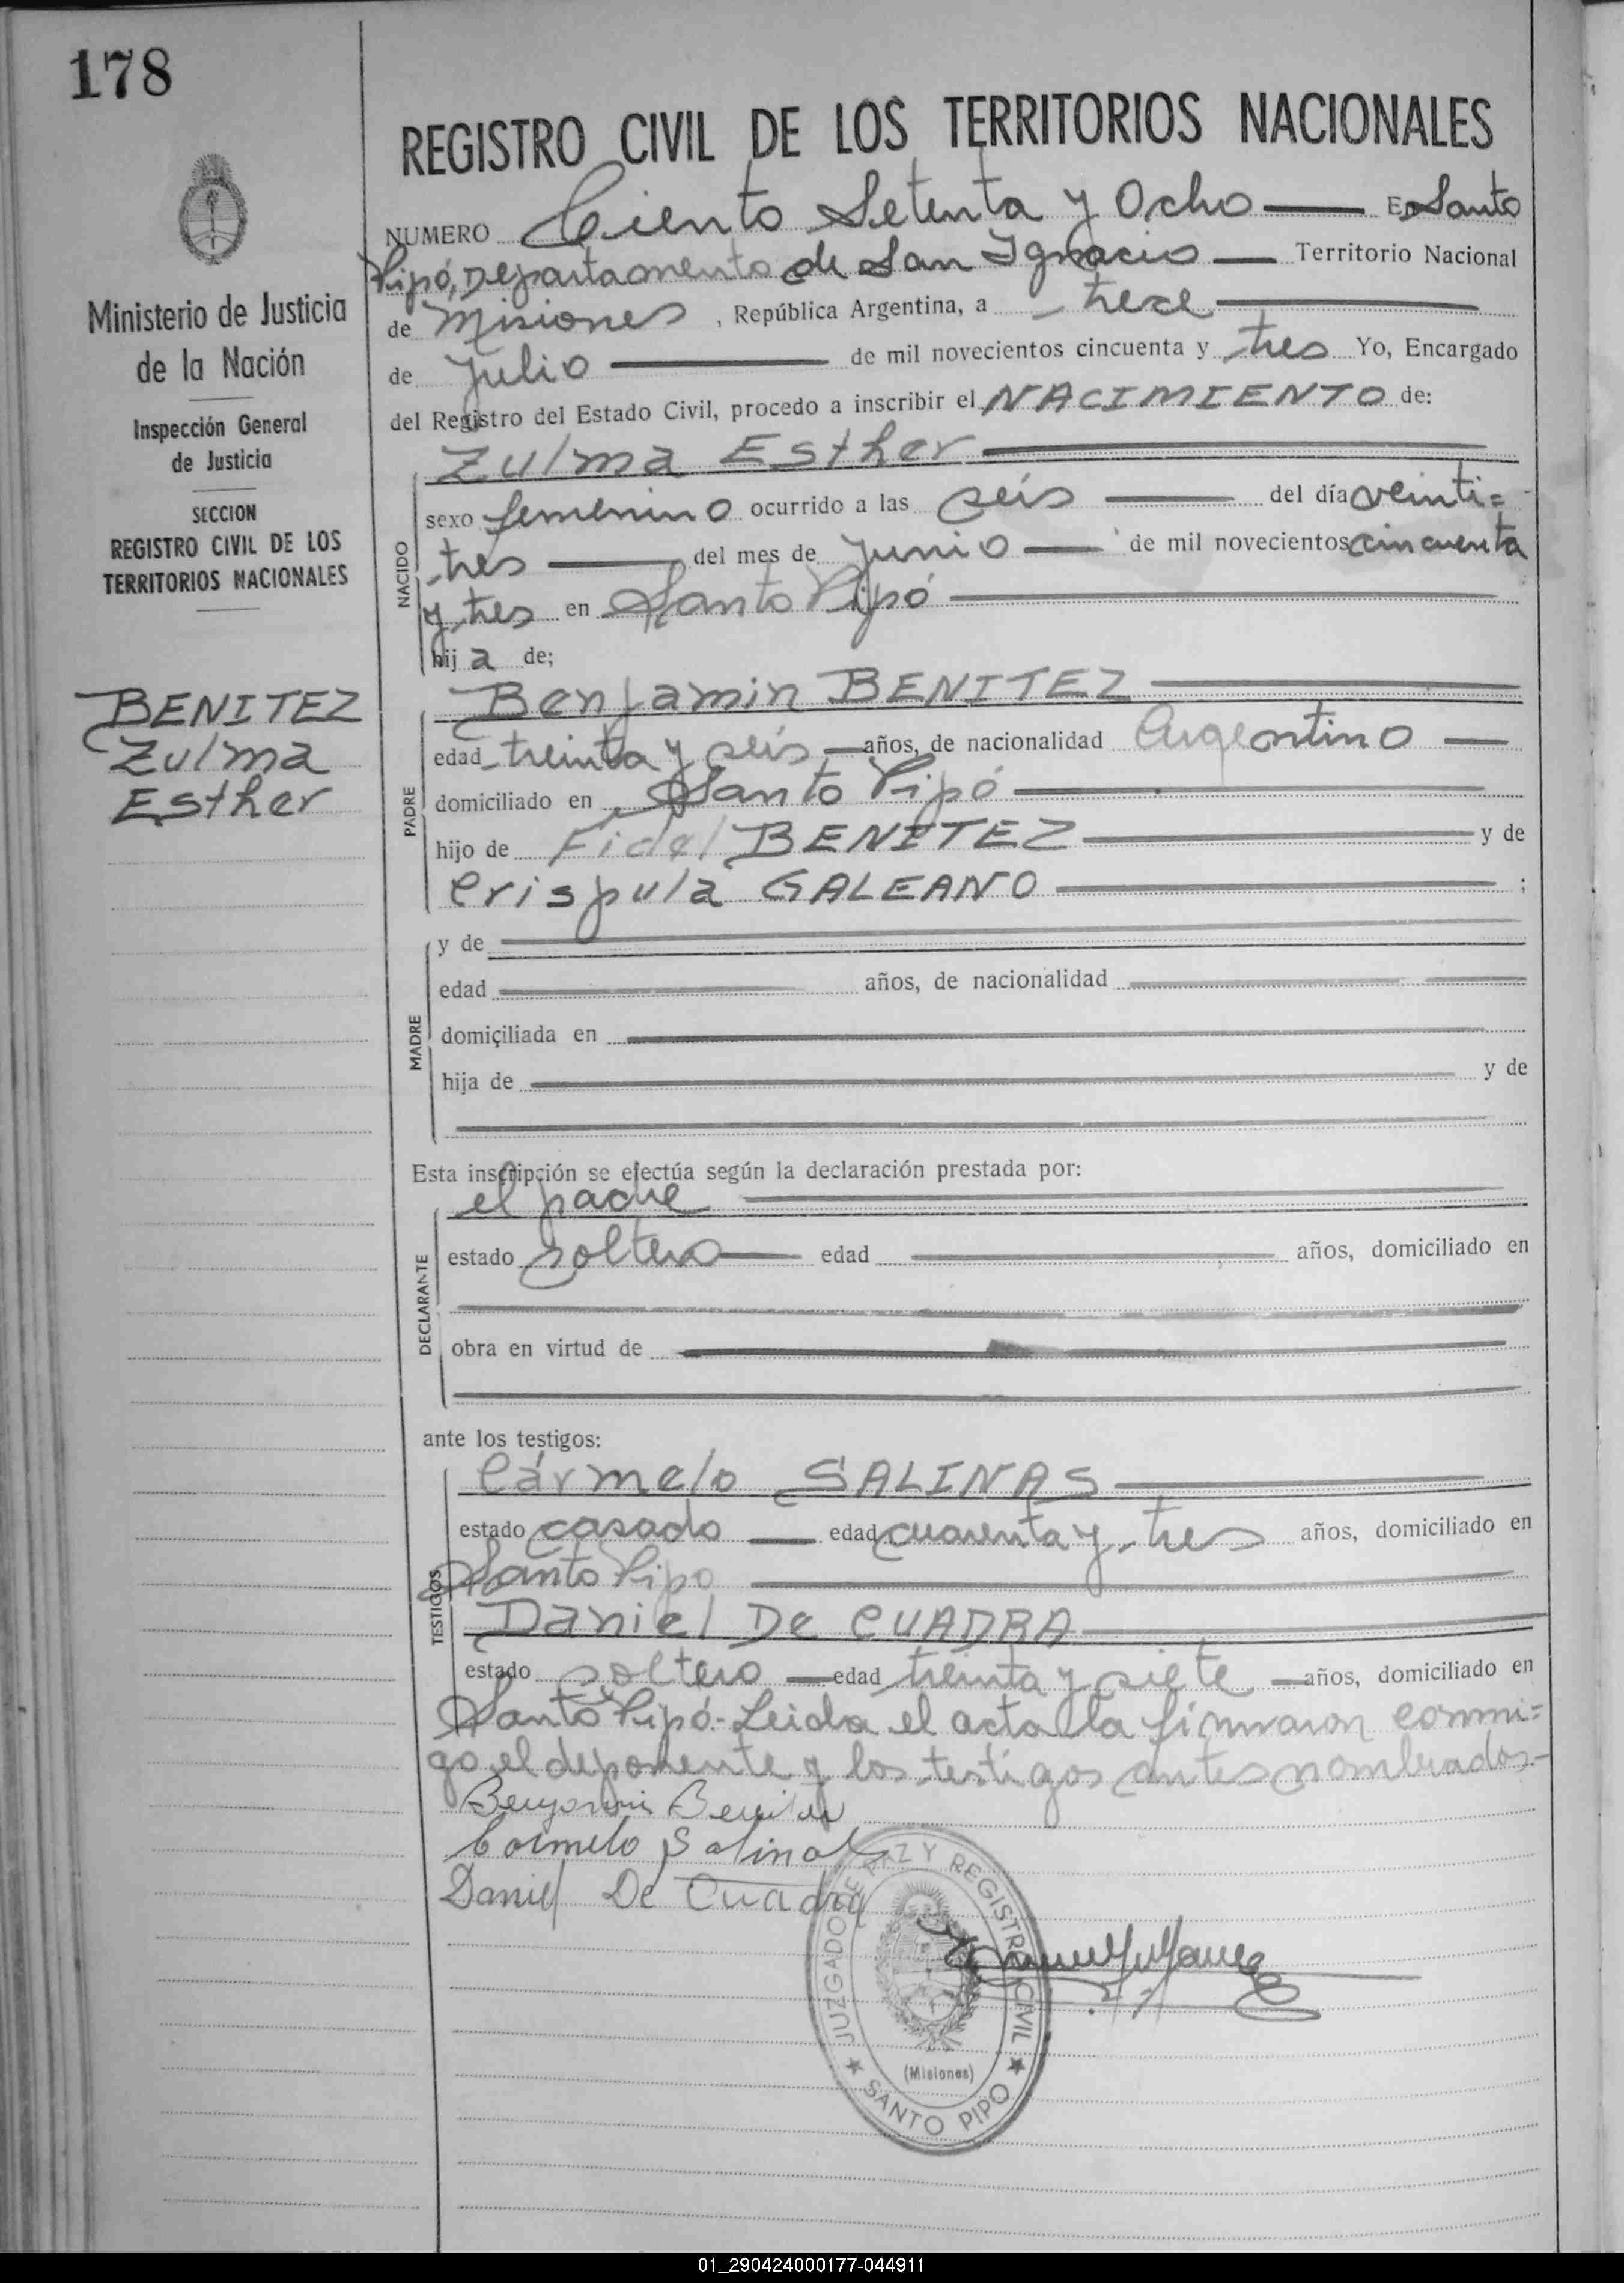 178
REGISTRO CIVIL DE LOS TERRITORIOS NACIONALES
NUMERO Ciento Setenta y Ocho En Santo
Pipó, Departamento de San Ignacio Territorio Nacional
de Misiones, República Argentina, a trece
de Julio de mil novecientos cincuenta y tres Yo, Encargado
del Registro del Estado Civil, procedo a inscribir el NACIMIENTO de:
Ministerio de Justicia
de la Nación
Inspección General
de Justicia
SECCION
REGISTRO CIVIL DE LOS
TERRITORIOS NACIONALES
BENITEZ
Zulma
Esther
NACIDO
Zulma Esther
sexo femenino ocurrido a las seis del día veinti=
tres del mes de Junio de mil novecientos cincuenta
y tres en Santo Pipó
hija de;
PADRE
Benjamin BENITEZ
edad treinta y seis años, de nacionalidad Argentino
domiciliado en Santo Pipó
hijo de Fidel BENITEZ y de
Crispula GALEANO ;
MADRE
y de
edad años, de nacionalidad
domiciliada en
hija de y de
Esta inscripción se efectúa según la declaración prestada por:
DECLARANTE
el padre
estado soltero edad años, domiciliado en
obra en virtud de
ante los testigos:
TESTIGOS
Cármelo SALINAS
estado casado edad cuarenta y tres años, domiciliado en
Santo Pipo
Daniel De CUADRA
estado soltero edad treinta y siete años, domiciliado en
Santo Pipó.- Leida el acta la firmaron conmi=
go el deponente y los testigos antes nombrados.-
Benjamin Benitez
Carmelo Salinas
Daniel De Cuadra
JUZGADO DE PAZ Y REGISTRO CIVIL
(Misiones)
SANTO PIPO
01_290424000177-044911